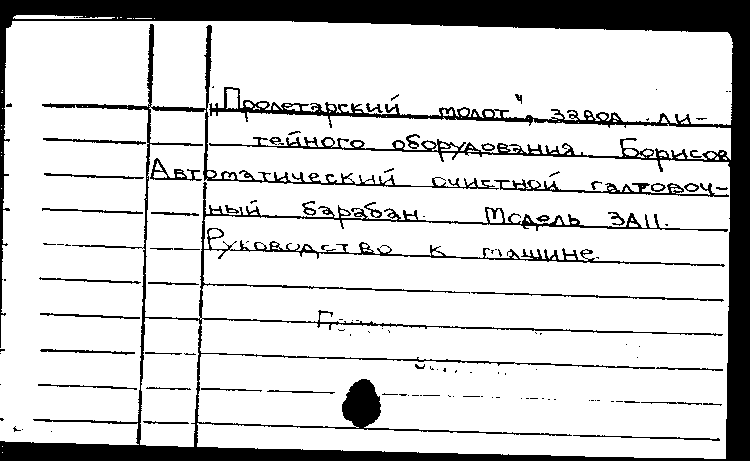 „Пролетарский молот", завод ли-
тейного оборудования. Борисов
Автоматический очистной галтовоч-
ный барабан. Модель 3А11.
Руководство к машине.